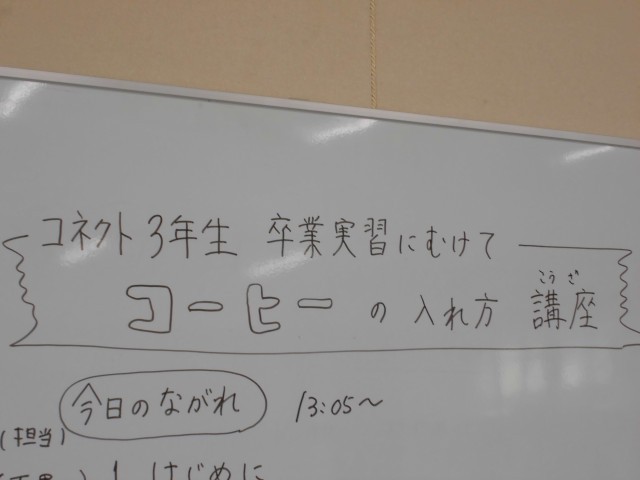 コネクト3年生 卒業実習にむけて
コーヒーの入れ方 講座
こうざ
今日のながれ 13:05〜
(担当)
1 はじめに